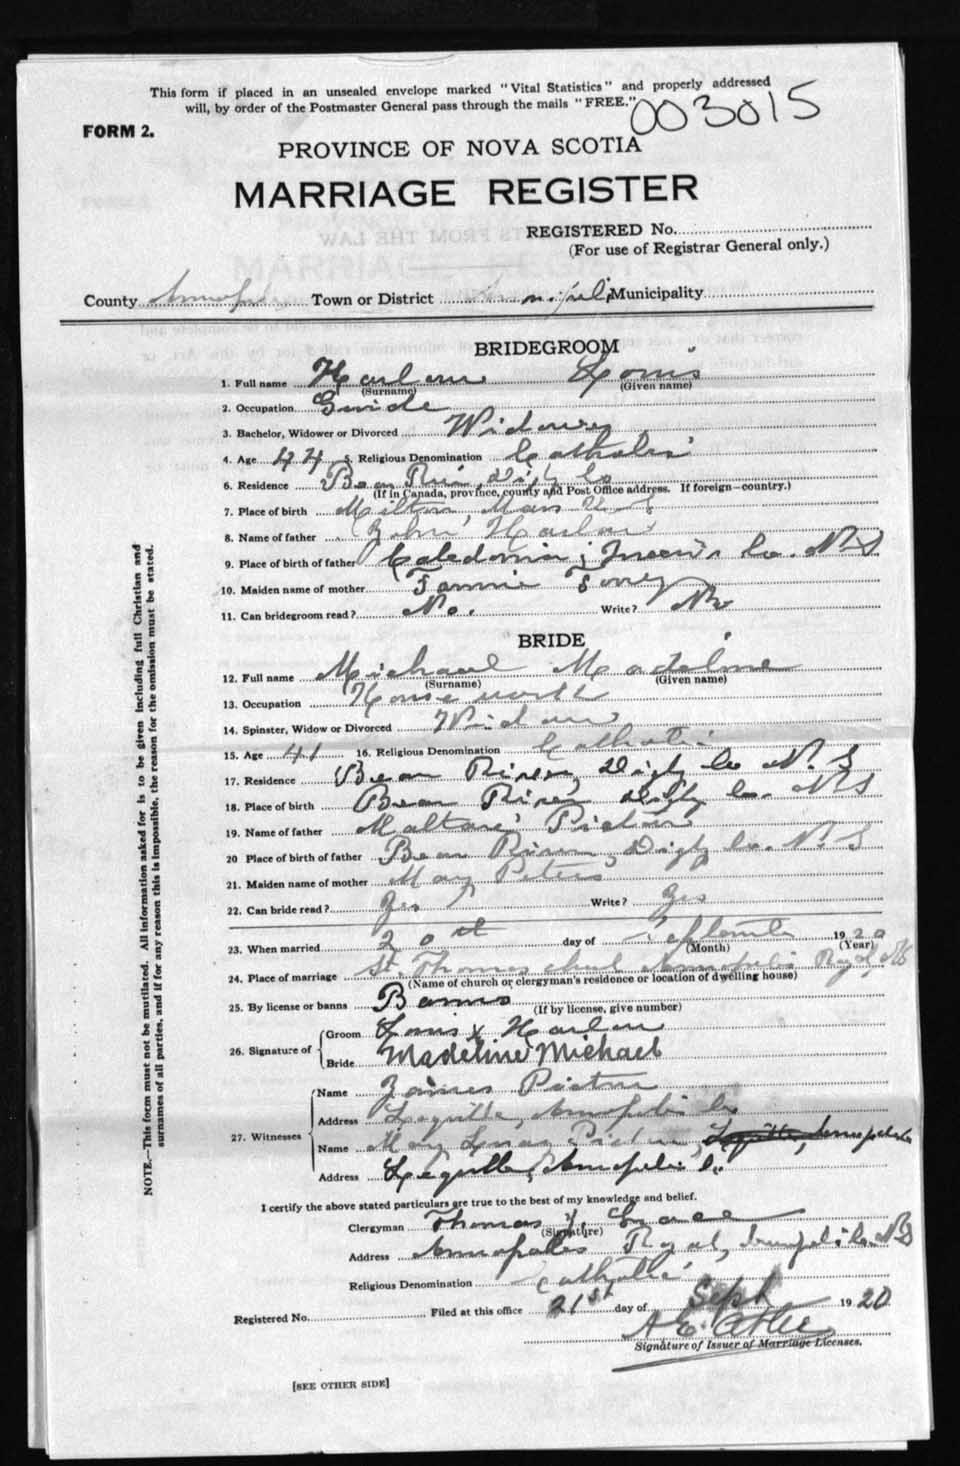 This form if placed in an unsealed envelope marked "Vital Statistics" and properly addressed
will, by order of the Postmaster General pass through the mails "FREE."
003015
FORM 2.
PROVINCE OF NOVA SCOTIA
MARRIAGE REGISTER
REGISTERED No.
(For use of Registrar General only.)
County Annapolis Town or District Annapolis Municipality
BRIDEGROOM
1. Full name Harlow Louis
(Surname) (Given name)
2. Occupation Guide
3. Bachelor, Widower or Divorced Widower
4. Age 44 5. Religious Denomination Catholic
6. Residence Bear River, Digby Co
(If in Canada, province, county and Post Office address. If foreign—country.)
7. Place of birth Milton, Mass U S
8. Name of father John Harlow
9. Place of birth of father Caledonia, Queen's Co. N S
10. Maiden name of mother Fannie
11. Can bridegroom read? No. Write? No
BRIDE
12. Full name Michael Madeline
(Surname) (Given name)
13. Occupation House work
14. Spinster, Widow or Divorced Widow
15. Age 41 16. Religious Denomination Catholic
17. Residence Bear River, Digby Co N. S
18. Place of birth Bear River Digby Co. N S
19. Name of father Pictou
20 Place of birth of father Bear River, Digby Co. N. S
21. Maiden name of mother Mary Peters
22. Can bride read? Yes Write? Yes
23. When married 20th day of September 1920
(Month) (Year)
24. Place of marriage St. Thomas Annapolis Royal, NS
(Name of church or clergyman's residence or location of dwelling house)
25. By license or banns Banns
(If by license, give number)
26. Signature of Groom Louis x Harlow
Bride Madeline Michael
27. Witnesses Name James Pictou
Address Lequille, Annapolis Co
Name Mary Pictou, Lequille, Annapolis Co
Address Lequille, Annapolis Co
I certify the above stated particulars are true to the best of my knowledge and belief.
Clergyman Thomas J. Grace
(Signature)
Address Annapolis Royal, Annapolis Co. NS
Religious Denomination Catholic
Registered No. Filed at this office 21st day of Sept 1920
A. E. Atlee
Signature of Issuer of Marriage Licenses.
[SEE OTHER SIDE]
NOTE.—This form must not be mutilated. All information asked for is to be given including full Christian and
surnames of all parties, and if for any reason this is impossible, the reason for the omission must be stated.